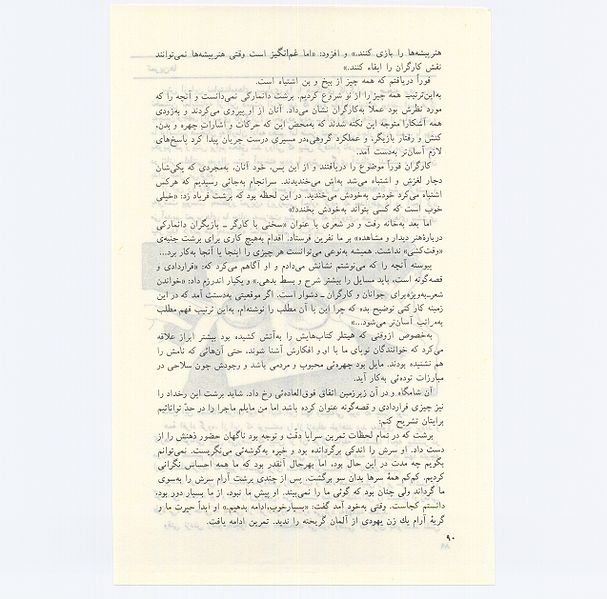 هنرپیشه‌ها را بازی کنند.» و افزود: «اما غم‌انگیز است وقتی هنرپیشه‌ها نمی‌توانند
نقش کارگران را ایفاء کنند.»
فوراً دریافتم که همه چیز از بیخ و بن اشتباه است.
به‌این‌ترتیب همه چیز را از نو شروع کردیم. برشت دانمارکی نمی‌دانست و آنچه را که
مورد نظرش بود عملاً به‌کارگران نشان می‌داد. آنان از او پیروی می‌کردند و به‌زودی
همه آشکارا متوجه این نکته شدند که به‌محض این که حرکات و اشارات چهره و بدن،
کنش و رفتار بازیگر، و عملکرد گروهی،در مسیری درست جریان پیدا کرد پاسخ‌های
لازم آسان‌تر به‌دست آمد.
کارگران فوراً موضوع را دریافتند و از این پس، خود آنان، به‌مجردی که یکی‌شان
دچار لغزش و اشتباه می‌شد به‌اش می‌خندیدند. سرانجام به‌جائی رسیدیم که هرکس
اشتباه می‌کرد خودش به‌خودش می‌خندید. در این لحظه بود که برشت فریاد زد: «خیلی
خوب است که کسی بتواند به‌خودش بخندد!»
اما بعد به‌خانه رفت و در شعری با عنوان «سخنی با کارگر ـ بازیگران دانمارکی
دربارهٔ‌هنر دیدار و مشاهده» بر ما نفرین فرستاد. اقدام به‌هیچ کاری برای برشت جنبه‌ی
«وقت‌کشی» نداشت. همیشه به‌نوعی می‌توانست هر چیزی را اینجا یا آنجا به‌کار برد...
پیوسته آنچه را که می‌نوشتم نشانش می‌دادم و او آگاهم می‌کرد که: «قراردادی و
قصه‌گونه است، باید مسایل را بیشتر شرح و بسط بدهی.» و یکبار اندرزم داد: «خواندن
شعرـ به‌ویژه‌برای جوانان و کارگران ـ دشوار است. اگر موقعیتی به‌دستت آمد که در این
زمینه کار کنی توضیح بده که چرا این یا آن مطلب را نوشته‌ام. به‌این ترتیب فهم مطلب
به‌مراتب آسان‌تر می‌شود...»
به‌خصوص ازوقتی که هیتلر کتاب‌هایش را به‌آتش کشیده بود بیشتر ابراز علاقه
می‌کرد که خوانندگان نوپای ما با او و افکارش آشنا شوند، حتی آن‌هائی که نامش را
هم نشنیده بودند. مایل بود چهره‌ئی محبوب و مردمی باشد و وجودش چون سلاحی در
مبارزات توده‌ئی به‌کار آید.
آن شامگاه و در آن زیرزمین اتفاق فوق‌العاده‌ئی رخ داد. شاید برشت این رخداد را
نیز چیزی قراردادی و قصه‌گونه عنوان کرده باشد اما من مایلم ماجرا را در حدّ توانائیم
برایتان تشریح کنم:
برشت که در تمام لحظات تمرین سراپا دقّت و توجه بود ناگهان حضور ذهنش را از
دست داد. او سرش را اندکی برگردانده بود و خیره به‌گوشه‌ئی می‌نگریست. نمی‌توانم
بگویم چه مدت در این حال بود، اما بهرحال آنقدر بود که ما همه احساس نگرانی
کردیم. کم‌کم همهٔ سرها بدان سو برگشت. پس از چندی برشت آرام سرش را به‌سوی
ما گرداند ولی چنان بود که گوئی ما را نمی‌بیند. او پیش ما نبود، از ما بسیار دور بود،
دانستم کجاست. وقتی به‌خود آمد گفت: «بسیارخوب،ادامه بدهیم.» او ابداً حیرت ما و
گریهٔ آرام یك زن یهودی از آلمان گریخته را ندید. تمرین ادامه یافت.
۹۰